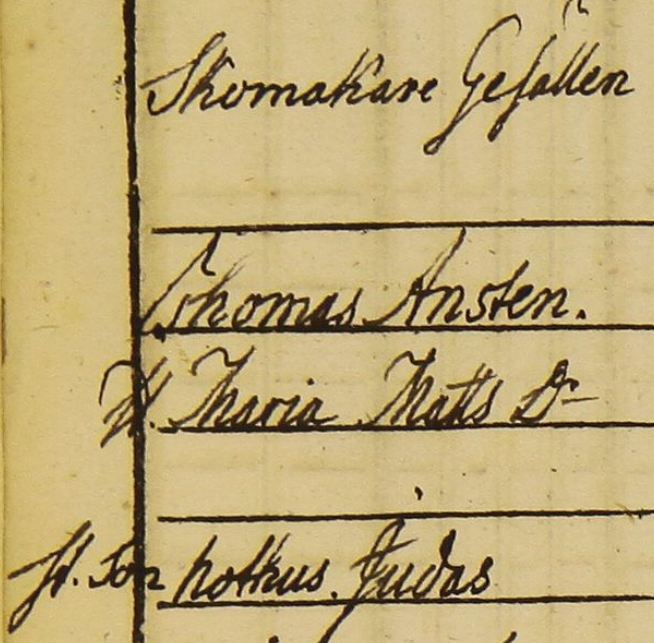 Skomakare Gesällen
Thomas Ansten.
H. Maria Matts Dr
St. Son Judas